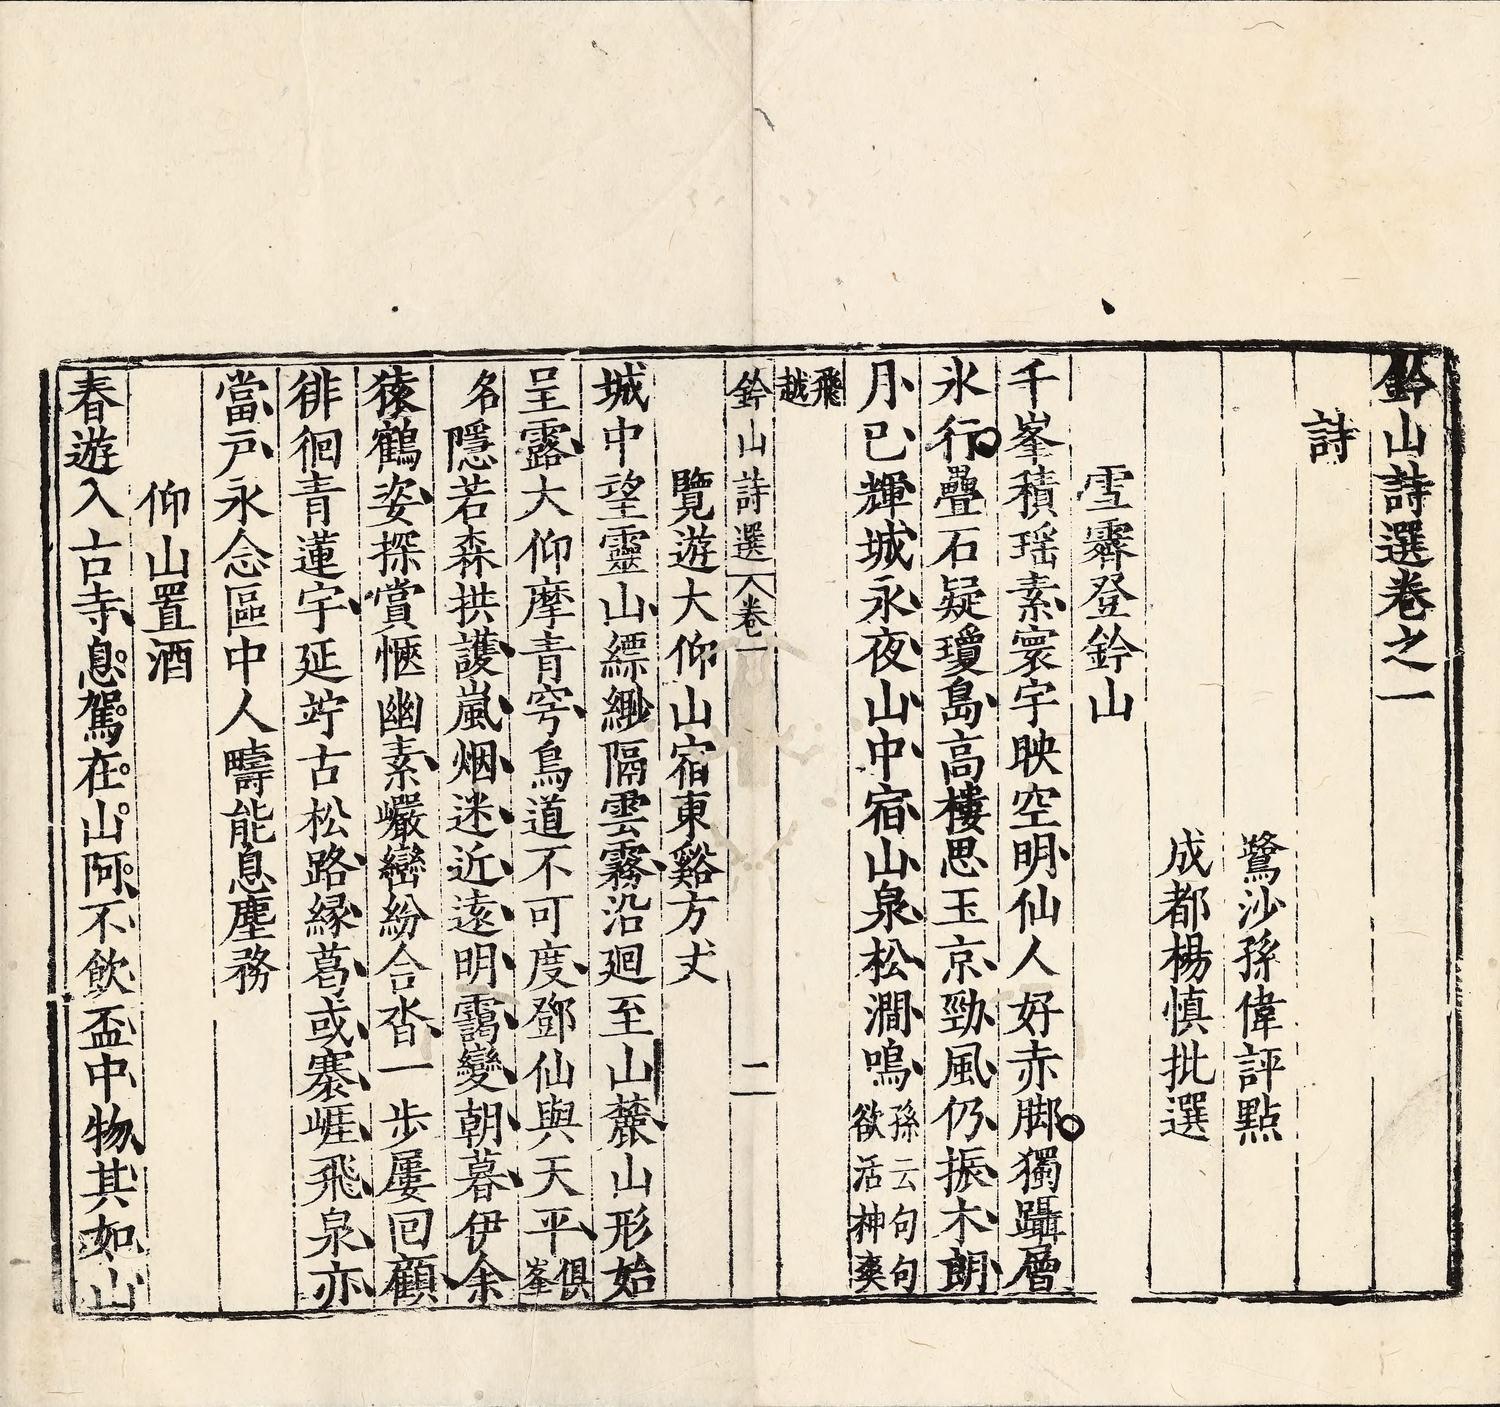 鈐山詩選卷之一
詩
鷺沙孫偉評點
成都楊慎批選
雪霽登鈐山
千峯積瑶素寰宇映空明仙人好赤脚獨躡層
氷行疊石疑瓊島高樓思玉京勁風仍振木朗
月已輝城永夜山中宿山泉松澗鳴孫云句句欲活神爽
飛越
鈐山詩選 卷一 二
覽遊大仰山宿東谿方丈
城中望靈山縹緲隔雲霧沿廻至山麓山形始
呈露大仰摩青穹鳥道不可度鄧仙與天平俱峯
名隱若森拱護嵐烟迷近遠明靄變朝暮伊余
猿鶴姿探賞愜幽素巖巒紛合沓一步屢回顧
徘徊青蓮宇延竚古松路緣葛或褰崕飛泉亦
當戶永念區中人疇能息塵務
仰山置酒
春遊入古寺息駕在山阿不飲盃中物其如山